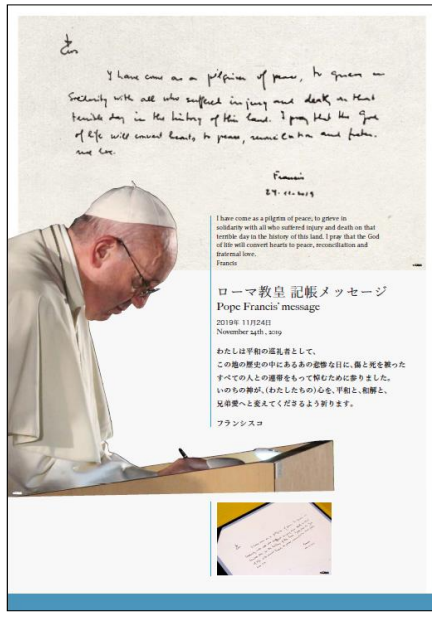 I have come as a pilgrim of peace, to grieve in
solidarity with all who suffered injury and death on that
terrible day in the history of this land. I pray that the God
of life will convert hearts to peace, reconciliation and frater-
nal love.
Francis
24.11.2019
I have come as a pilgrim of peace, to grieve in
solidarity with all who suffered injury and death on that
terrible day in the history of this land. I pray that the God
of life will convert hearts to peace, reconciliation and
fraternal love.
Francis
ローマ教皇 記帳メッセージ
Pope Francis' message
2019年 11月24日
November 24th , 2019
わたしは平和の巡礼者として、
この地の歴史の中にあるあの悲惨な日に、傷と死を被った
すべての人との連帯をもって悼むために参りました。
いのちの神が、(わたしたちの)心を、平和と、和解と、
兄弟愛へと変えてくださるよう祈ります。
フランシスコ